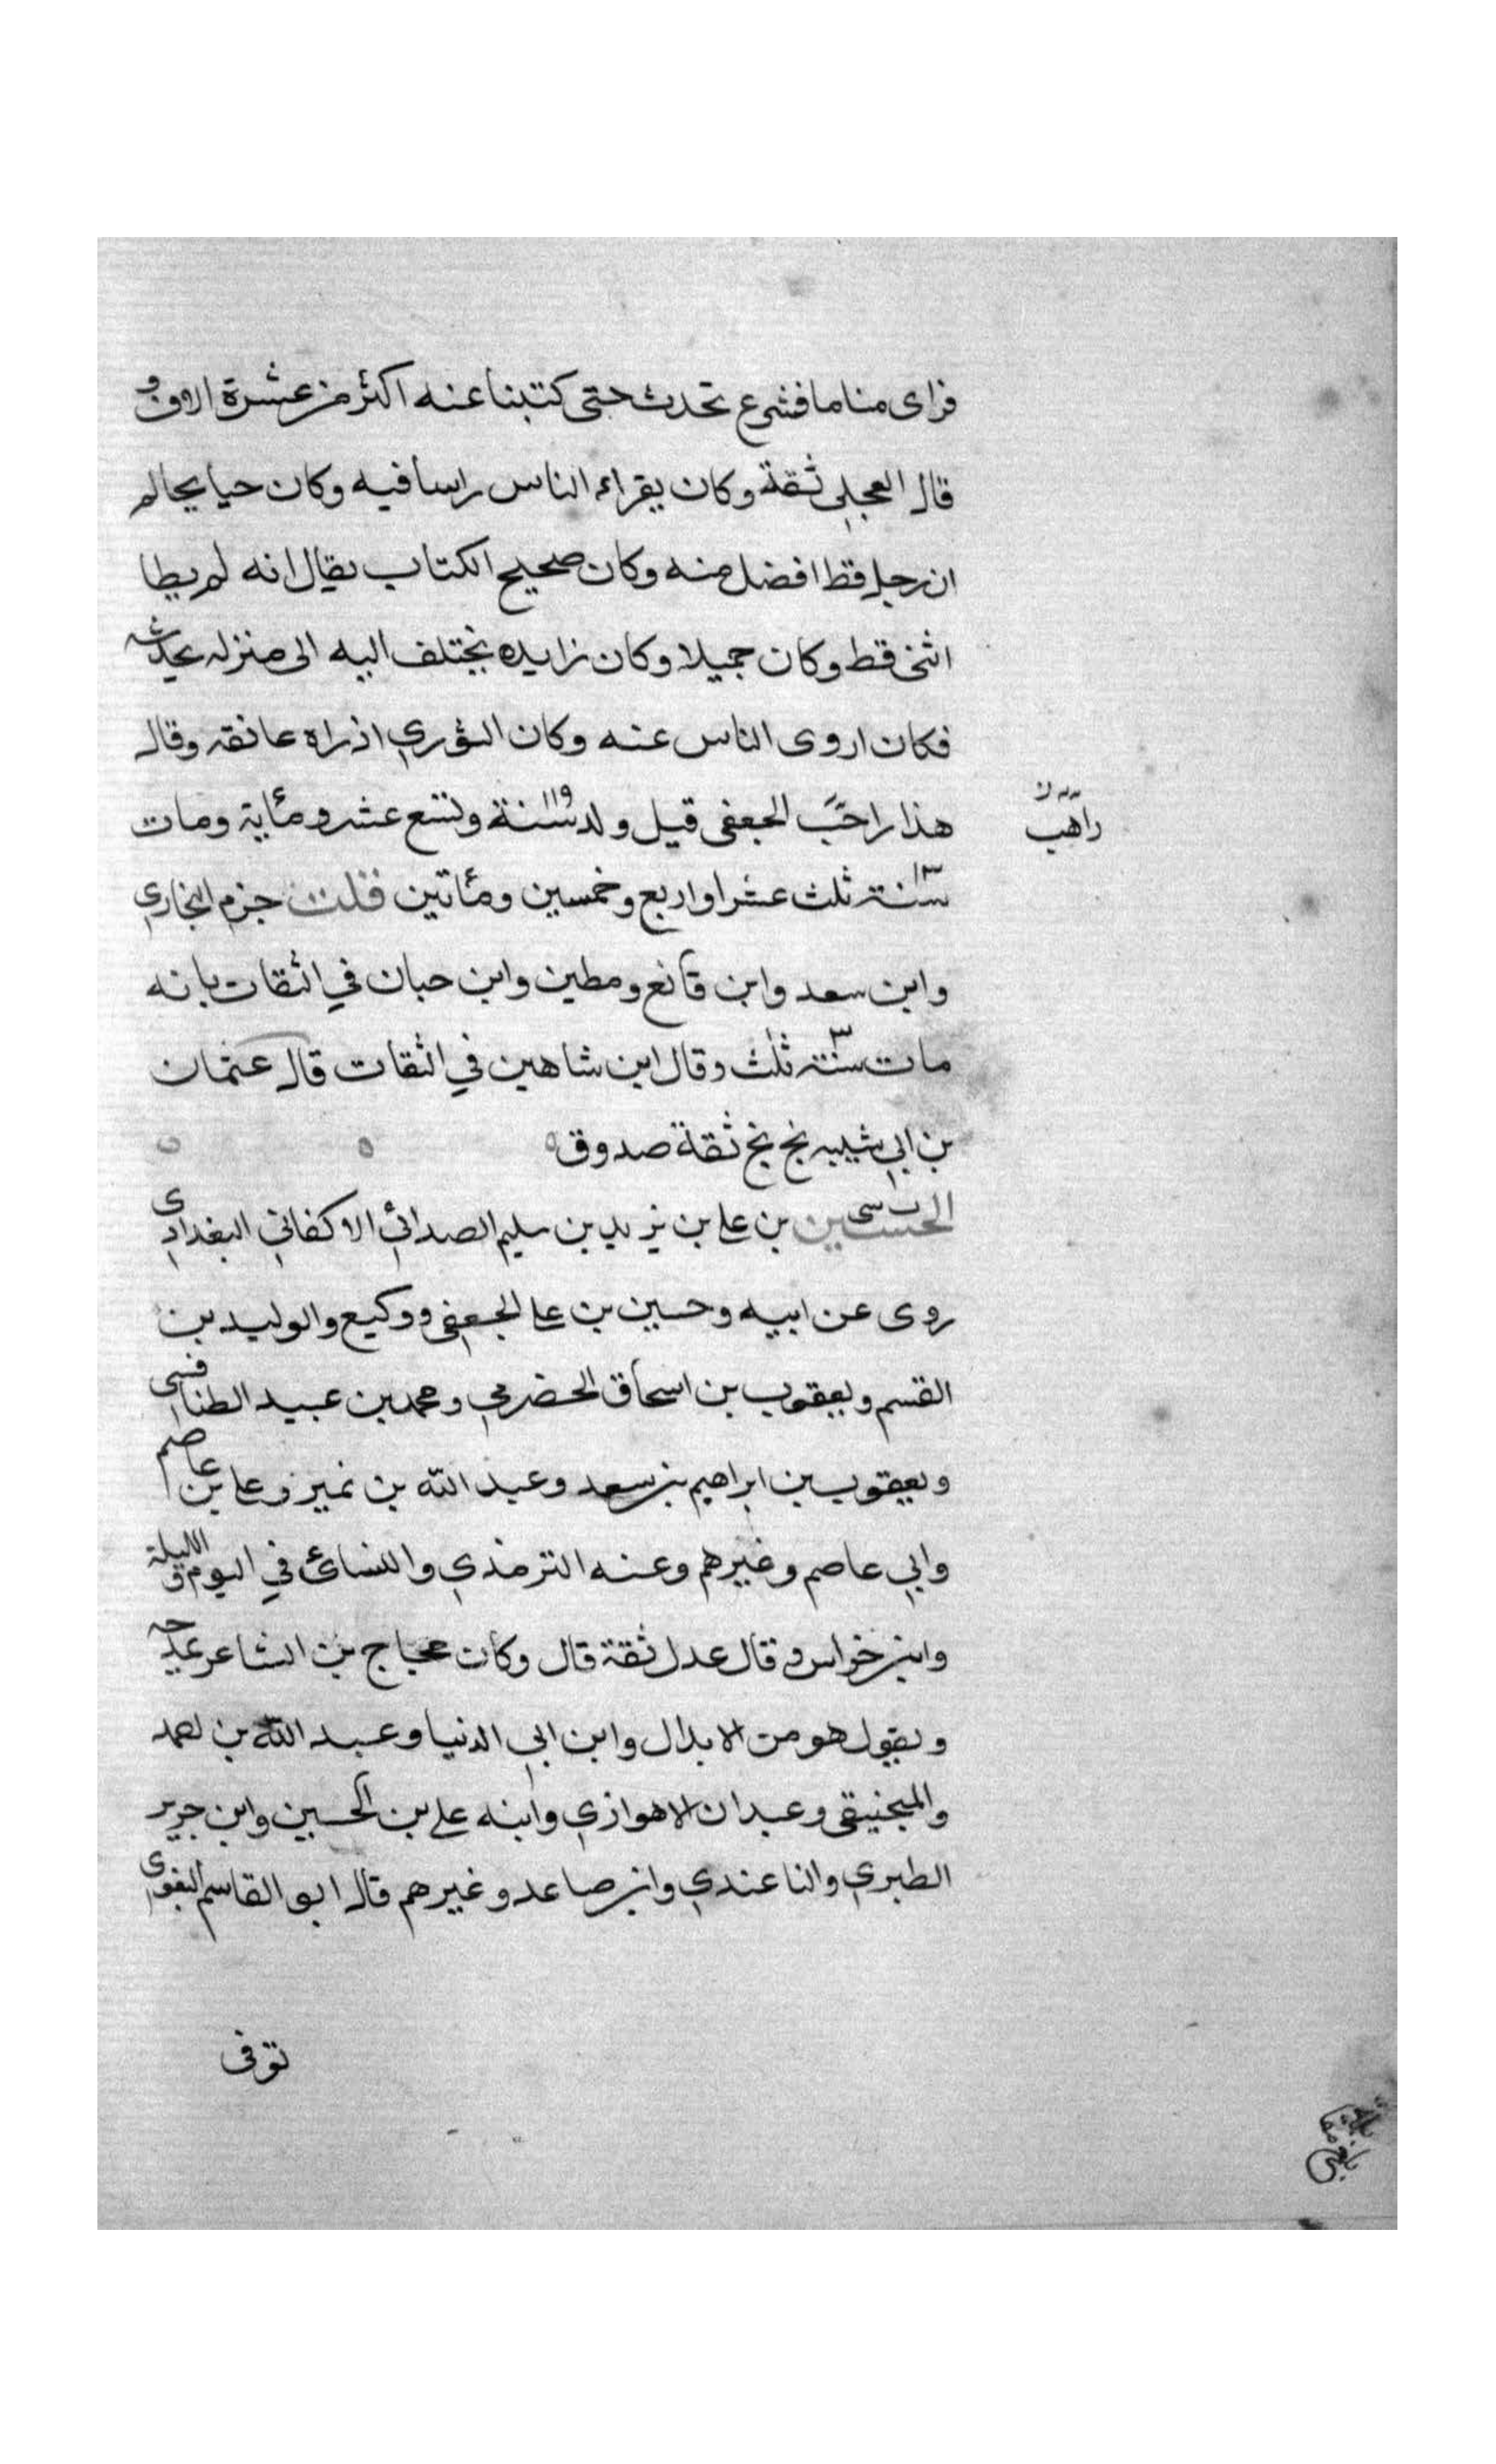 فراى مناما فشرع تحدث حتى كتبنا عنه اكثر من عشرة الاوف و
قال العجلى ثقة وكان يقراء الناس راسا فيه وكان حيا يحالم
ان رجل قط افضل منه وكان صحيح الكتاب يقال انه لم يطا
انثى قط وكان جميلا وكان زايده يختلف اليه الى منزله يحدثه
فكان اروى الناس عنه وكان الثوري اذ راه عانقه وقال
هذا راحب الجعفى قيل ولد سنة ١١٩ وتسع عشر ومئاية ومات
راهب
سنة ١٣ ثلث عشر او اربع وخمسين ومئاتين قلت جزم البخاري
وابن سعد وابن قانع ومطين وابن حبان في الثقات بانه
مات سنة ٣ ثلث وقال ابن شاهين في الثقات قال عثمان
بن ابي شيبه بخ بخ ثقة صدوق ه ه
الحسين بن على بن يزيد بن سليم الصدائي الاكفاني البغدادي
روى عن ابيه وحسين بن على الجعفى ووكيع والوليد بن
القسم ويعقوب بن اسحاق الحضرمي ومحمد بن عبيد الطنافسي
ويعقوب بن ابراهيم بن سعد وعبد الله بن نمير وعلى بن عاصم
وابي عاصم وغيرهم وعنه الترمذي والنسائ في اليوم والليلة
وابن خراس و قال عدل ثقة قال وكان حجاج بن الشاعر يمدحه
ويقول هو من الابدال وابن ابي الدنيا وعبد الله بن احمد
والمنجنيقى وعبدان الاهوازي وابنه على بن الحسين وابن جرير
الطبري والنا عندي وابن صاعد وغيرهم قال ابو القاسم البغوي
توفى